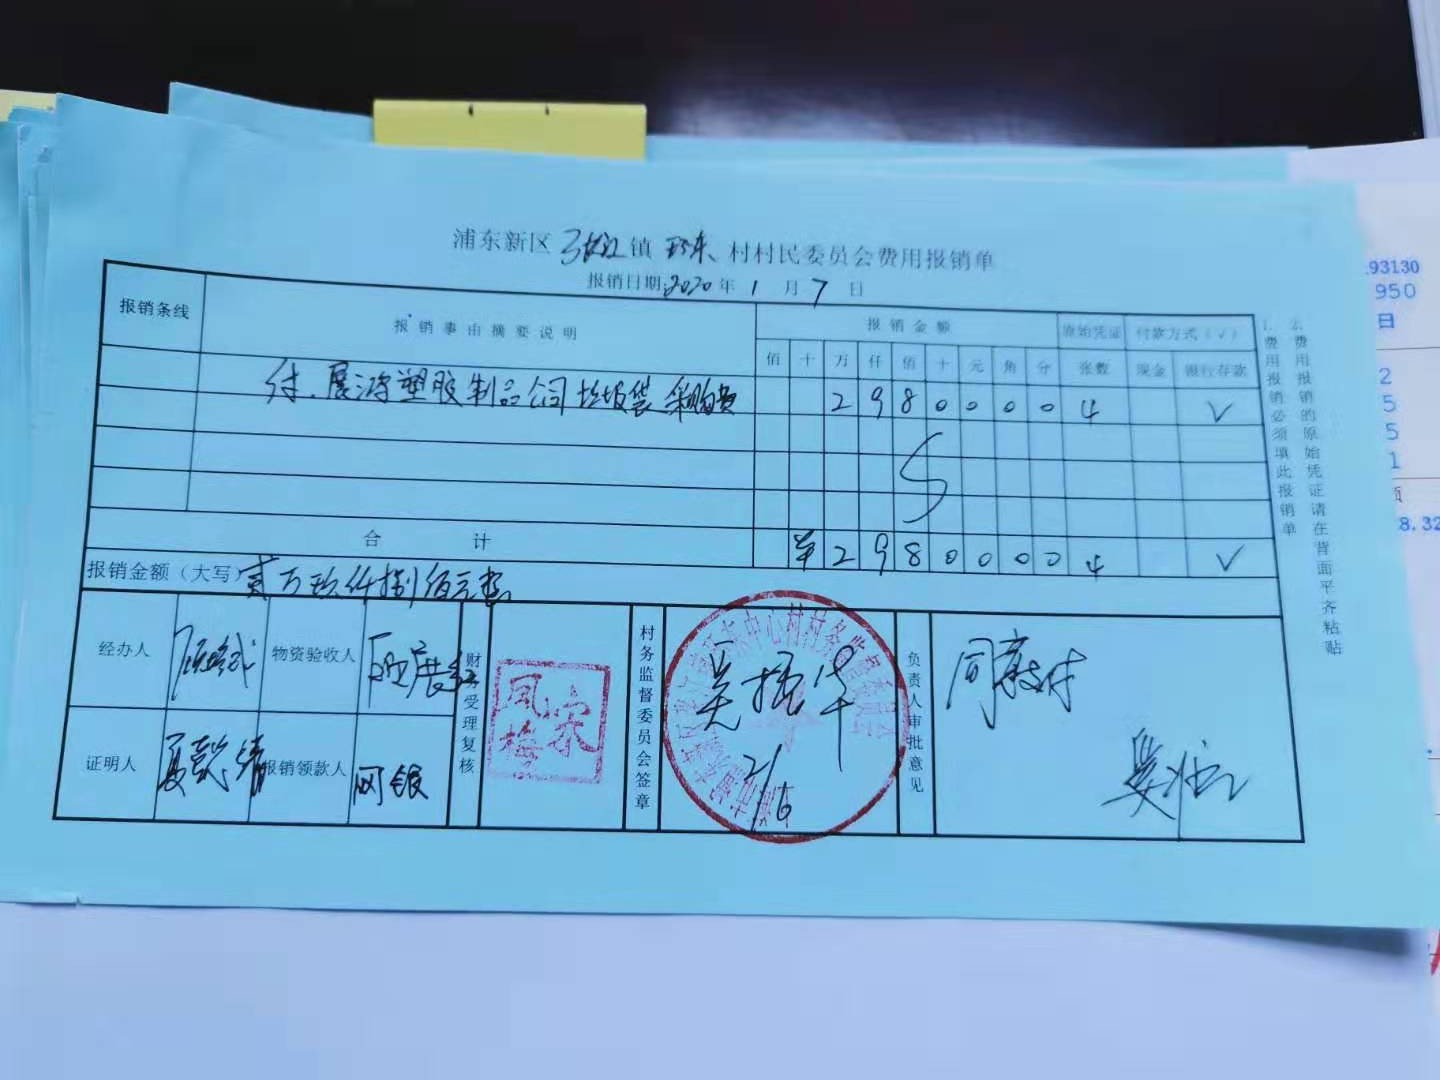 浦东新区 张江 镇 环东 村村民委员会费用报销单
报销日期:2020 年 1 月 7 日
报销条线 报销事由摘要说明 报销金额 原始凭证 付款方式(√)
佰 十 万 仟 佰 十 元 角 分 张数 现金 银行存款
付.展鸿塑胶制品公司垃圾袋采购费 2 9 8 0 0 0 0 4 √
合 计 2 9 8 0 0 0 0 4 √
报销金额(大写) 贰万玖仟捌佰元整
经办人 物资验收人
证明人 报销领款人 网银
财务受理复核
宋凤梅
村务监督委员会签章
吴振华
2/6
负责人审批意见
同意支付
1. 费用报销必须填此报销单
2. 费用报销的原始凭证请在背面平齐粘贴
93130
950
日
2
5
5
1
8.32